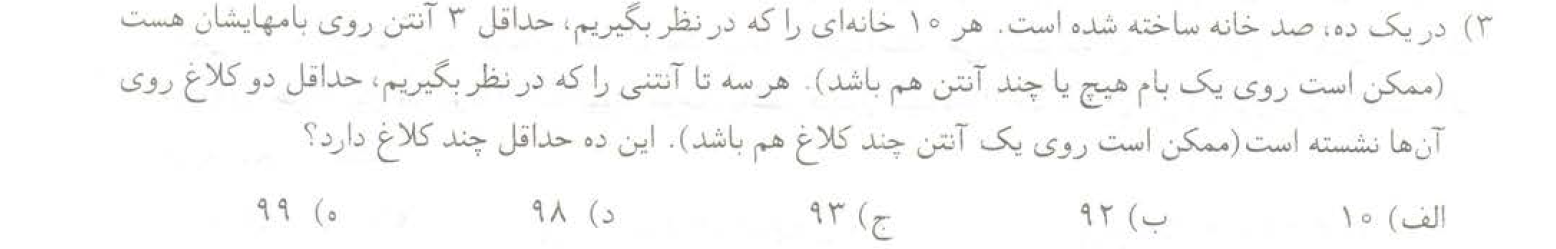 ۳) در یک ده، صد خانه ساخته شده است. هر ۱۰ خانه‌ای را که در نظر بگیریم، حداقل ۳ آنتن روی بامهایشان هست
(ممکن است روی یک بام هیچ یا چند آنتن هم باشد). هر سه تا آنتنی را که در نظر بگیریم، حداقل دو کلاغ روی
آن‌ها نشسته است (ممکن است روی یک آنتن چند کلاغ هم باشد). این ده حداقل چند کلاغ دارد؟
الف) ۱۰ ب) ۹۲ ج) ۹۳ د) ۹۸ ه) ۹۹